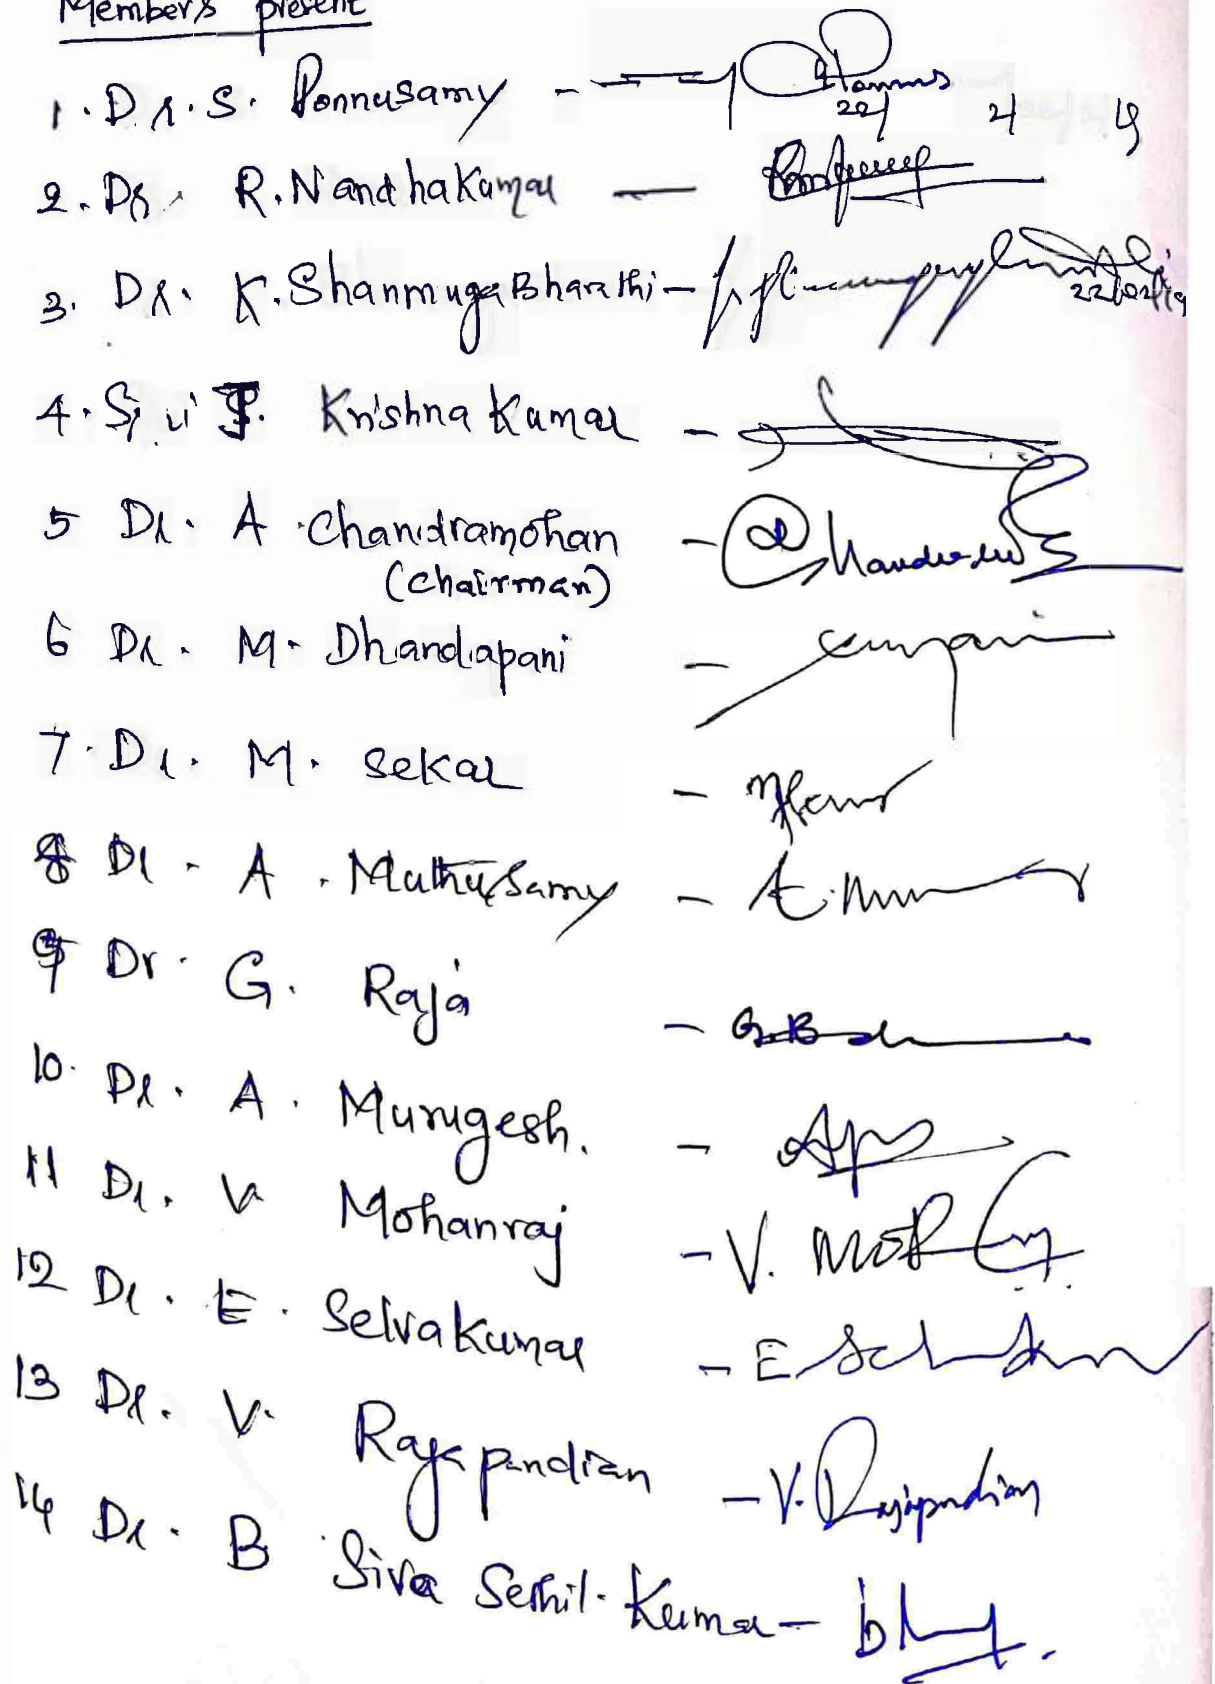 Members present
1. Dr. S. Ponnusamy -
22/2/19
2. Dr. R. Nandhakumar -
3. Dr. K. Shanmuga Bharathi -
22/02/19
4. Sri P. Krishna Kumar -
5 Dr. A. Chandramohan -
(Chairman)
6 Dr. M. Dhandapani -
7. Dr. M. Sekar -
8 Dr. A. Muthusamy -
9 Dr. G. Raja -
10. Dr. A. Murugesh. -
11 Dr. V Mohanraj - V.
12 Dr. E. Selvakumar - E
13 Dr. V. Rajapandian - V. Rajapandian
14 Dr. B Siva Senthil Kumar -